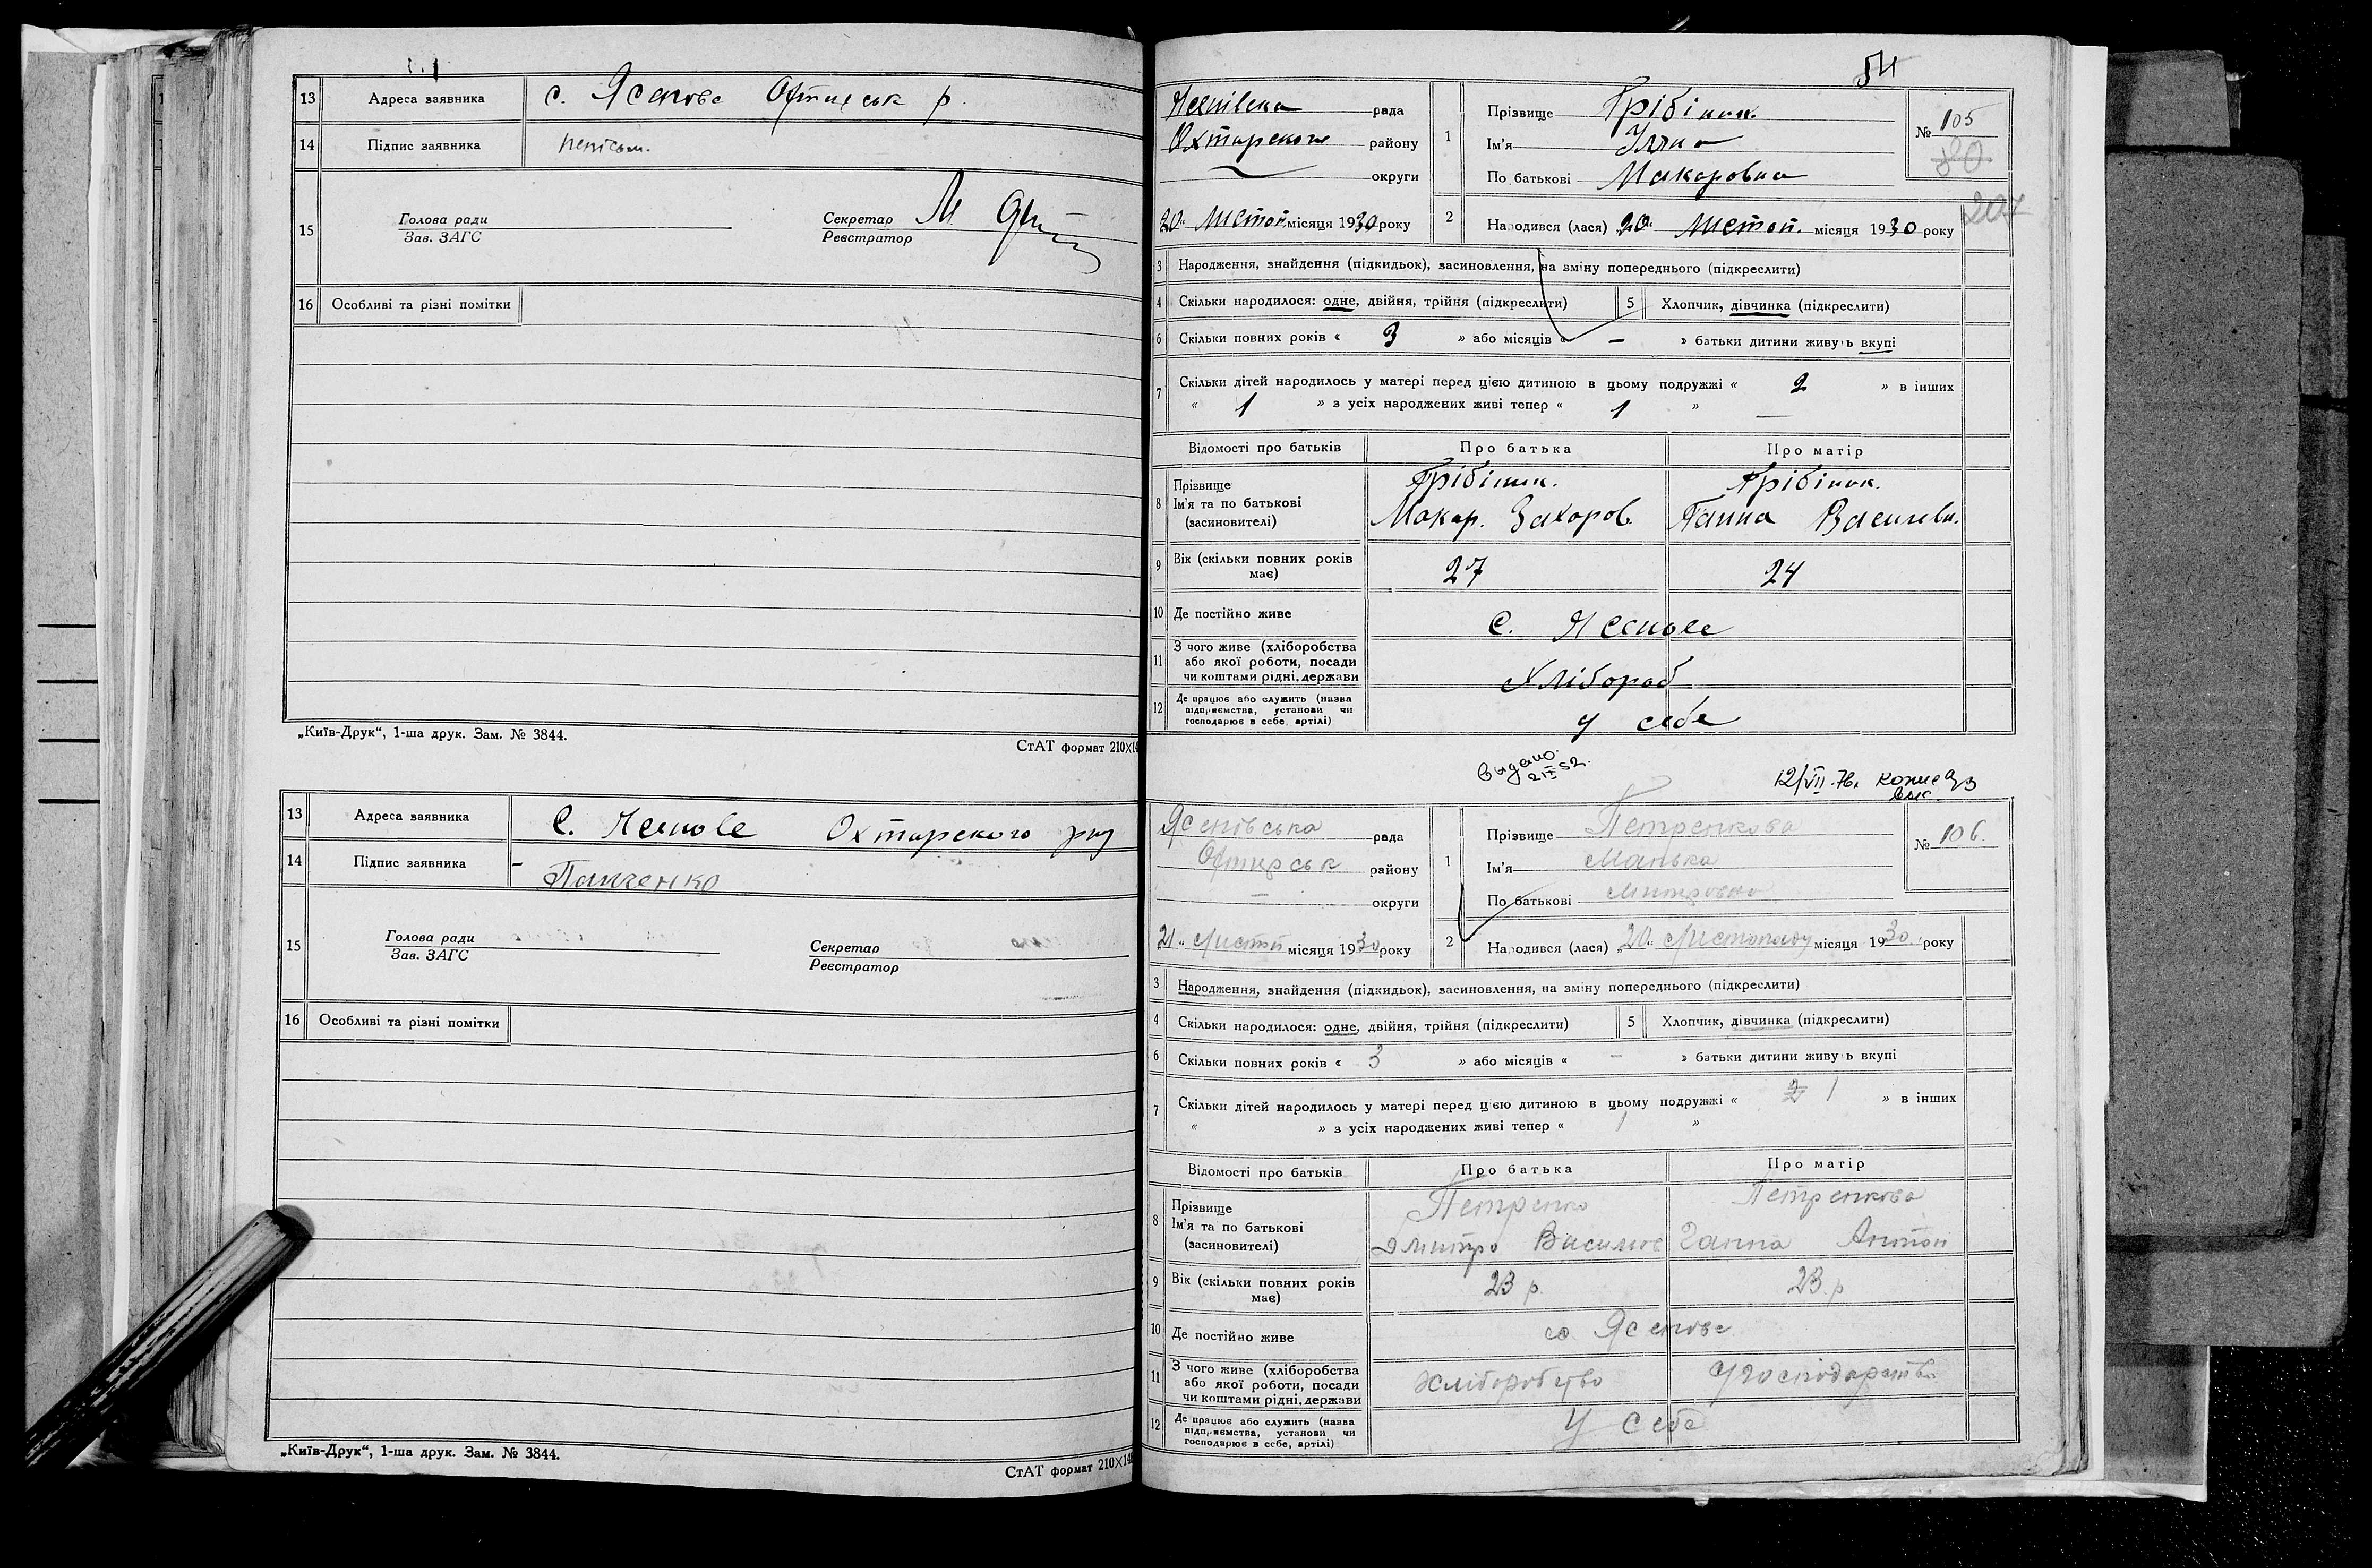 13 Адреса заявника с. Ясенове Охтирськ р.
14 Підпис заявника неписьм.
15 Голова ради Секретар М.
Зав. ЗАГС Реєстратор
16 Особливі та різні помітки
„Київ-Друк“, 1-ша друк. Зам. № 3844.
СтАТ формат 210×14
13 Адреса заявника С. Ясенове Охтирского
14 Підпис заявника Панченко
15 Голова ради Секретар
Зав. ЗАГС Реєстратор
16 Особливі та різні помітки
„Київ-Друк“, 1-ша друк. Зам. № 3844.
СтАТ формат 210×148
54
Ясенівска рада
Охтирского району
округи
1 Прізвище Грібіник.
Ім'я
По батькові Макаровна
№ 105
80
207
20 листоп. місяця 1930 року
2 Народився (лася) 20 листоп. місяця 1930 року
3 Народження, знайдення (підкидьок), засиновлення, на зміну попереднього (підкреслити)
4 Скільки народилося: одне, двійня, трійня (підкреслити) 5 Хлопчик, дівчинка (підкреслити)
6 Скільки повних років « 3 » або місяців « – » батьки дитини живуть вкупі
7 Скільки дітей народилось у матері перед цією дитиною в цьому подружжі « 2 » в інших
« 1 » з усіх народжених живі тепер « 1 » —
Відомості про батьків Про батька Про матір
8 Прізвище Грібіник. Грібіник.
Ім'я та по батькові Макар. Захаров. Ганна Василевн.
(засиновителі)
9 Вік (скільки повних років має) 27 24
10 Де постійно живе С. Ясенове
11 З чого живе (хліборобства або якої роботи, посади чи коштами рідні, держави Хлібороб
12 Де працює або служить (назва підприємства, установи чи господарює в себе, артілі) у себе
Выдано.
52.
12/VII-76.
Ясенівська рада
Охтирськ району
— округи
1 Прізвище Петренкова
Ім'я Манька
По батькові Митровна
№ 106.
21 листоп місяця 1930 року
2 Народився (лася) „20“ листопаду місяця 1930 року
3 Народження, знайдення (підкидьок), засиновлення, на зміну попереднього (підкреслити)
4 Скільки народилося: одне, двійня, трійня (підкреслити) 5 Хлопчик, дівчинка (підкреслити)
6 Скільки повних років « 3 » або місяців « – » батьки дитини живуть вкупі
7 Скільки дітей народилось у матері перед цією дитиною в цьому подружжі « 2 1 » в інших
« » з усіх народжених живі тепер « 1 »
Відомості про батьків Про батька Про матір
8 Прізвище Петренко Петренкова
Ім'я та по батькові Дмитро Василів Ганна Антон
(засиновителі)
9 Вік (скільки повних років має) 23 р. 23 р
10 Де постійно живе с. Ясенове
11 З чого живе (хліборобства або якої роботи, посади чи коштами рідні, держави Хліборобство У господарстві
12 Де працює або служить (назва підприємства, установи чи господарює в себе, артілі) У себе